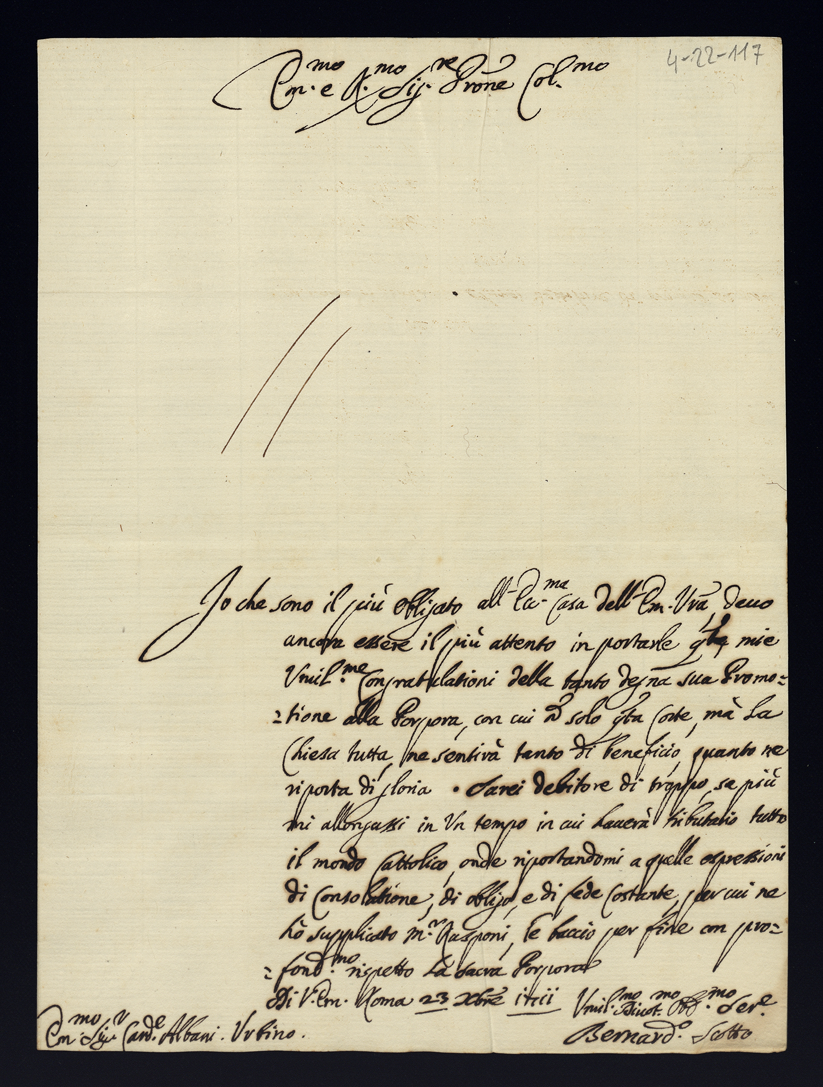 4-22-117
Em.mo e R.mo Sig.re Prōne Col.mo
Io che sono il più obligato all'Ecc.ma Casa dell'Em. Vrā, deuo
ancora essere il più attento in portarle q.te mie
Vmil.me Congratulationi della tanto degna sua Promo=
=tione alla Porpora, con cui nō solo q.ta Corte, mà La
Chiesa tutta, ne sentirà tanto di beneficio, quanto ne
riporta di gloria. Sarei debitore di troppo, se più
mi allongassi in Vn tempo in cui hauerà tributario tutto
il mondo Cattolico, onde riportandomi a quelle espressioni
di Consolatione, di obligo, e di fede Costante, per cui ne
hò supplicato M.r Rasponi, le baccio per fine con pro=
=fond.mo rispetto La Sacra Porpora
Di V. Em. Roma 23 Xbrē 1711
Vmil.mo Diuot.mo Obl.mo Ser.e
Em.mo Sig.r Card.e Albani. Vrbino.
Bernard.o Scotto